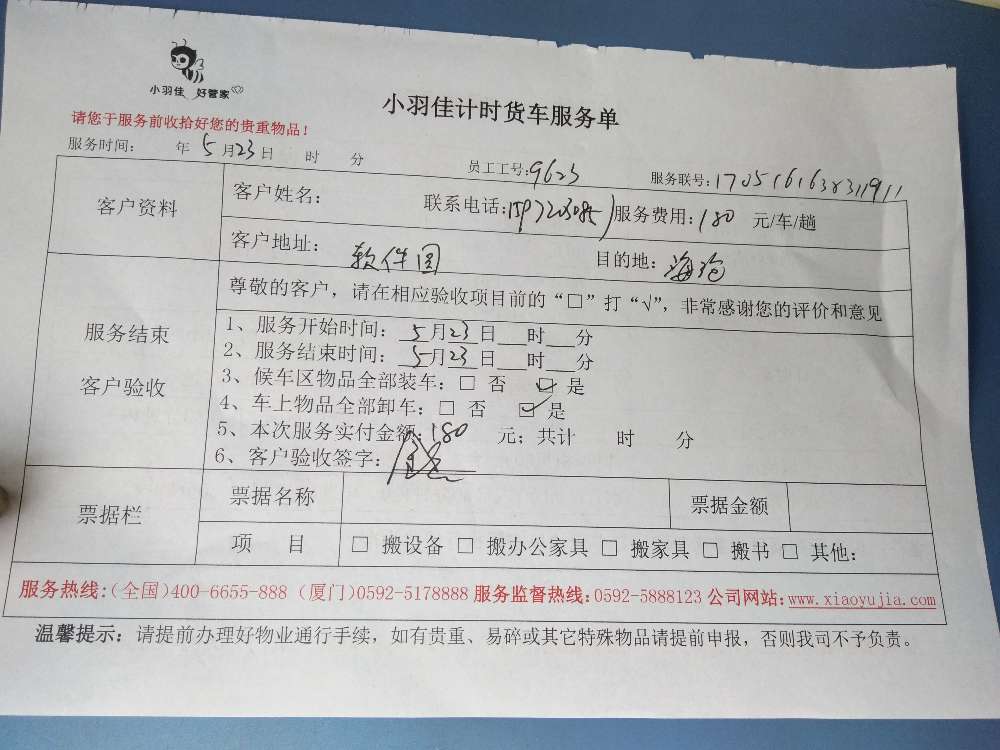 小羽佳 好管家
小羽佳计时货车服务单
请您于服务前收拾好您的贵重物品!
服务时间: 年 5月23日 时 分 员工工号:9623 服务联号:
客户资料
客户姓名: 联系电话: 服务费用:180 元/车/趟
客户地址: 软件园 目的地: 海沧
服务结束
客户验收
尊敬的客户，请在相应验收项目前的“□”打“√”，非常感谢您的评价和意见
1、服务开始时间: 5月23日 时 分
2、服务结束时间: 5月23日 时 分
3、候车区物品全部装车: □ 否 ☑ 是
4、车上物品全部卸车: □ 否 ☑ 是
5、本次服务实付金额:180 元; 共计 时 分
6、客户验收签字:
票据栏
票据名称 票据金额
项 目 □ 搬设备 □ 搬办公家具 □ 搬家具 □ 搬书 □ 其他:
服务热线:(全国)400-6655-888 (厦门)0592-5178888 服务监督热线:0592-5888123 公司网站:www.xiaoyujia.com
温馨提示: 请提前办理好物业通行手续，如有贵重、易碎或其它特殊物品请提前申报，否则我司不予负责。